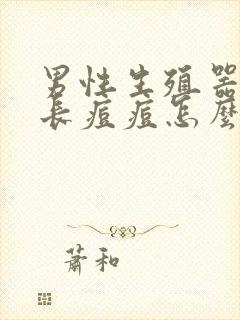 男性生殖器
长痘痘怎麼
萧和